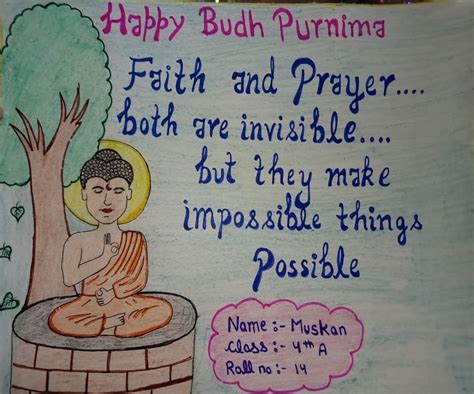 Happy Budh Purnima
Faith and Prayer....
both are invisible....
but they make
impossible things
Possible
Name :- Muskan
Class :- 4th A
Roll no :- 14